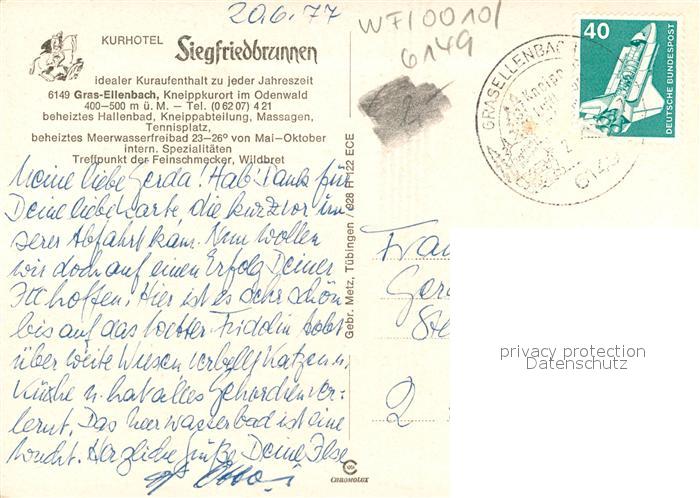 20.6.77
WF/0010/
6149
KURHOTEL Siegfriedbrunnen
idealer Kuraufenthalt zu jeder Jahreszeit
6149 Gras-Ellenbach, Kneippkurort im Odenwald
400—500 m ü. M. — Tel. (0 62 07) 4 21
beheiztes Hallenbad, Kneippabteilung, Massagen,
Tennisplatz,
beheiztes Meerwasserfreibad 23-26° von Mai-Oktober
intern. Spezialitäten
Treffpunkt der Feinschmecker, Wildbret
Meine liebe Gerda! Hab' Dank für
Deine liebe Karte, die kurz vor un-
serer Abfahrt kam. Nun wollen
wir doch auf einen Erfolg Deiner
hoffen. Hier ist es sehr schön
bis auf das Wetter. Fridolin tobt
über weite Wiesen verbellt Katzen u.
Kühe u. hat alles Gehorchen ver-
lernt. Das Meerwasserbad ist eine
Wucht. Herzliche Grüße Deine Ilse
Gebr. Metz, Tübingen / 928 H 122 ECE
CHROMOLUX
GRASELLENBACH
6149
40
DEUTSCHE BUNDESPOST
Frau
Ger
2
privacy protection
Datenschutz